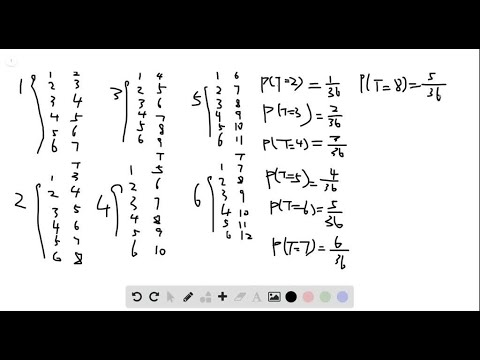 1
1 2
2 3
3 4
4 5
5 6
6 7
2
T
1 3
2 4
3 5
4 6
5 7
6 8
3
1 4
2 5
3 6
4 7
5 8
6 9
4
T
1 5
2 6
3 7
4 8
5 9
6 10
5
1 6
2 7
3 8
4 9
5 10
6 11
6
T
1 7
2 8
3 9
4 10
5 11
6 12
P(T=2)=1/36
P(T=3)=2/36
P(T=4)=3/36
P(T=5)=4/36
P(T=6)=5/36
P(T=7)=6/36
P(T=8)=5/36